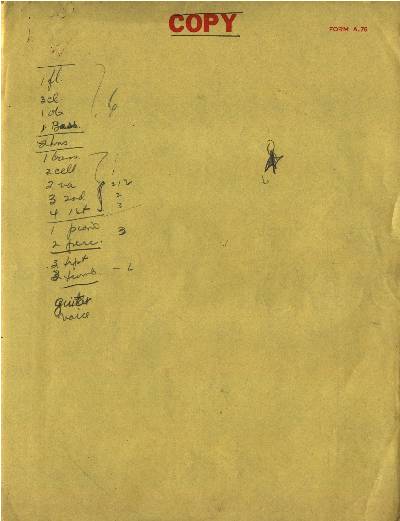 COPY
FORM A-76
1 fl.
3 cl. 6
1 ob
1 Bass.
2 hns
1 bass
2 cell 1
2 va 2
3 2nd 2
4 1st 3
1 piano 3
2 perc.
3 tpt
2 tromb
guitar
voice